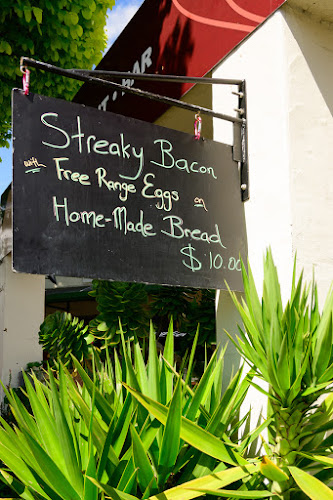 Streaky Bacon
with Free Range Eggs on
Home-Made Bread
$10.00